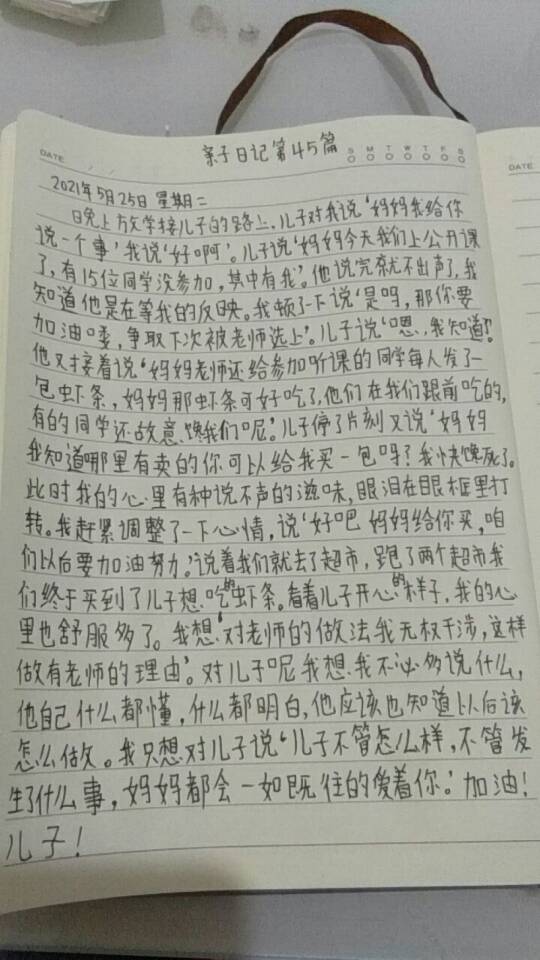 亲子日记第45篇
DATE / / S M T W T F S
DATE
2021年5月25日 星期二
日晚上放学接儿子的路上,儿子对我说‘妈妈我给你
说一个事’我说‘好啊’。儿子说‘妈妈今天我们上公开课
了,有15位同学没参加,其中有我’。他说完就不出声了,我
知道他是在等我的反映。我顿了下说‘是吗,那你要
加油唛,争取下次被老师选上’。儿子说‘嗯,我知道’。
他又接着说‘妈妈老师还给参加听课的同学每人发了一
包虾条,妈妈那虾条可好吃了,他们在我们跟前吃的,
有的同学还故意馋我们呢。’儿子停了片刻又说‘妈妈
我知道哪里有卖的你可以给我买一包吗?我快馋死了。
此时我的心里有种说不声的滋味,眼泪在眼框里打
转。我赶紧调整了一下心情,说‘好吧 妈妈给你买,咱
们以后要加油努力。’说着我们就去了超市,跑了两个超市我
们终于买到了儿子想吃的虾条。看着儿子开心的样子,我的心
里也舒服多了。我想‘对老师的做法我无权干涉,这样
做有老师的理由’。对儿子呢我想我不必多说什么,
他自己什么都懂,什么都明白,他应该也知道以后该
怎么做。我只想对儿子说‘儿子不管怎么样,不管发
生了什么事,妈妈都会一如既往的爱着你。’加油!
儿子!